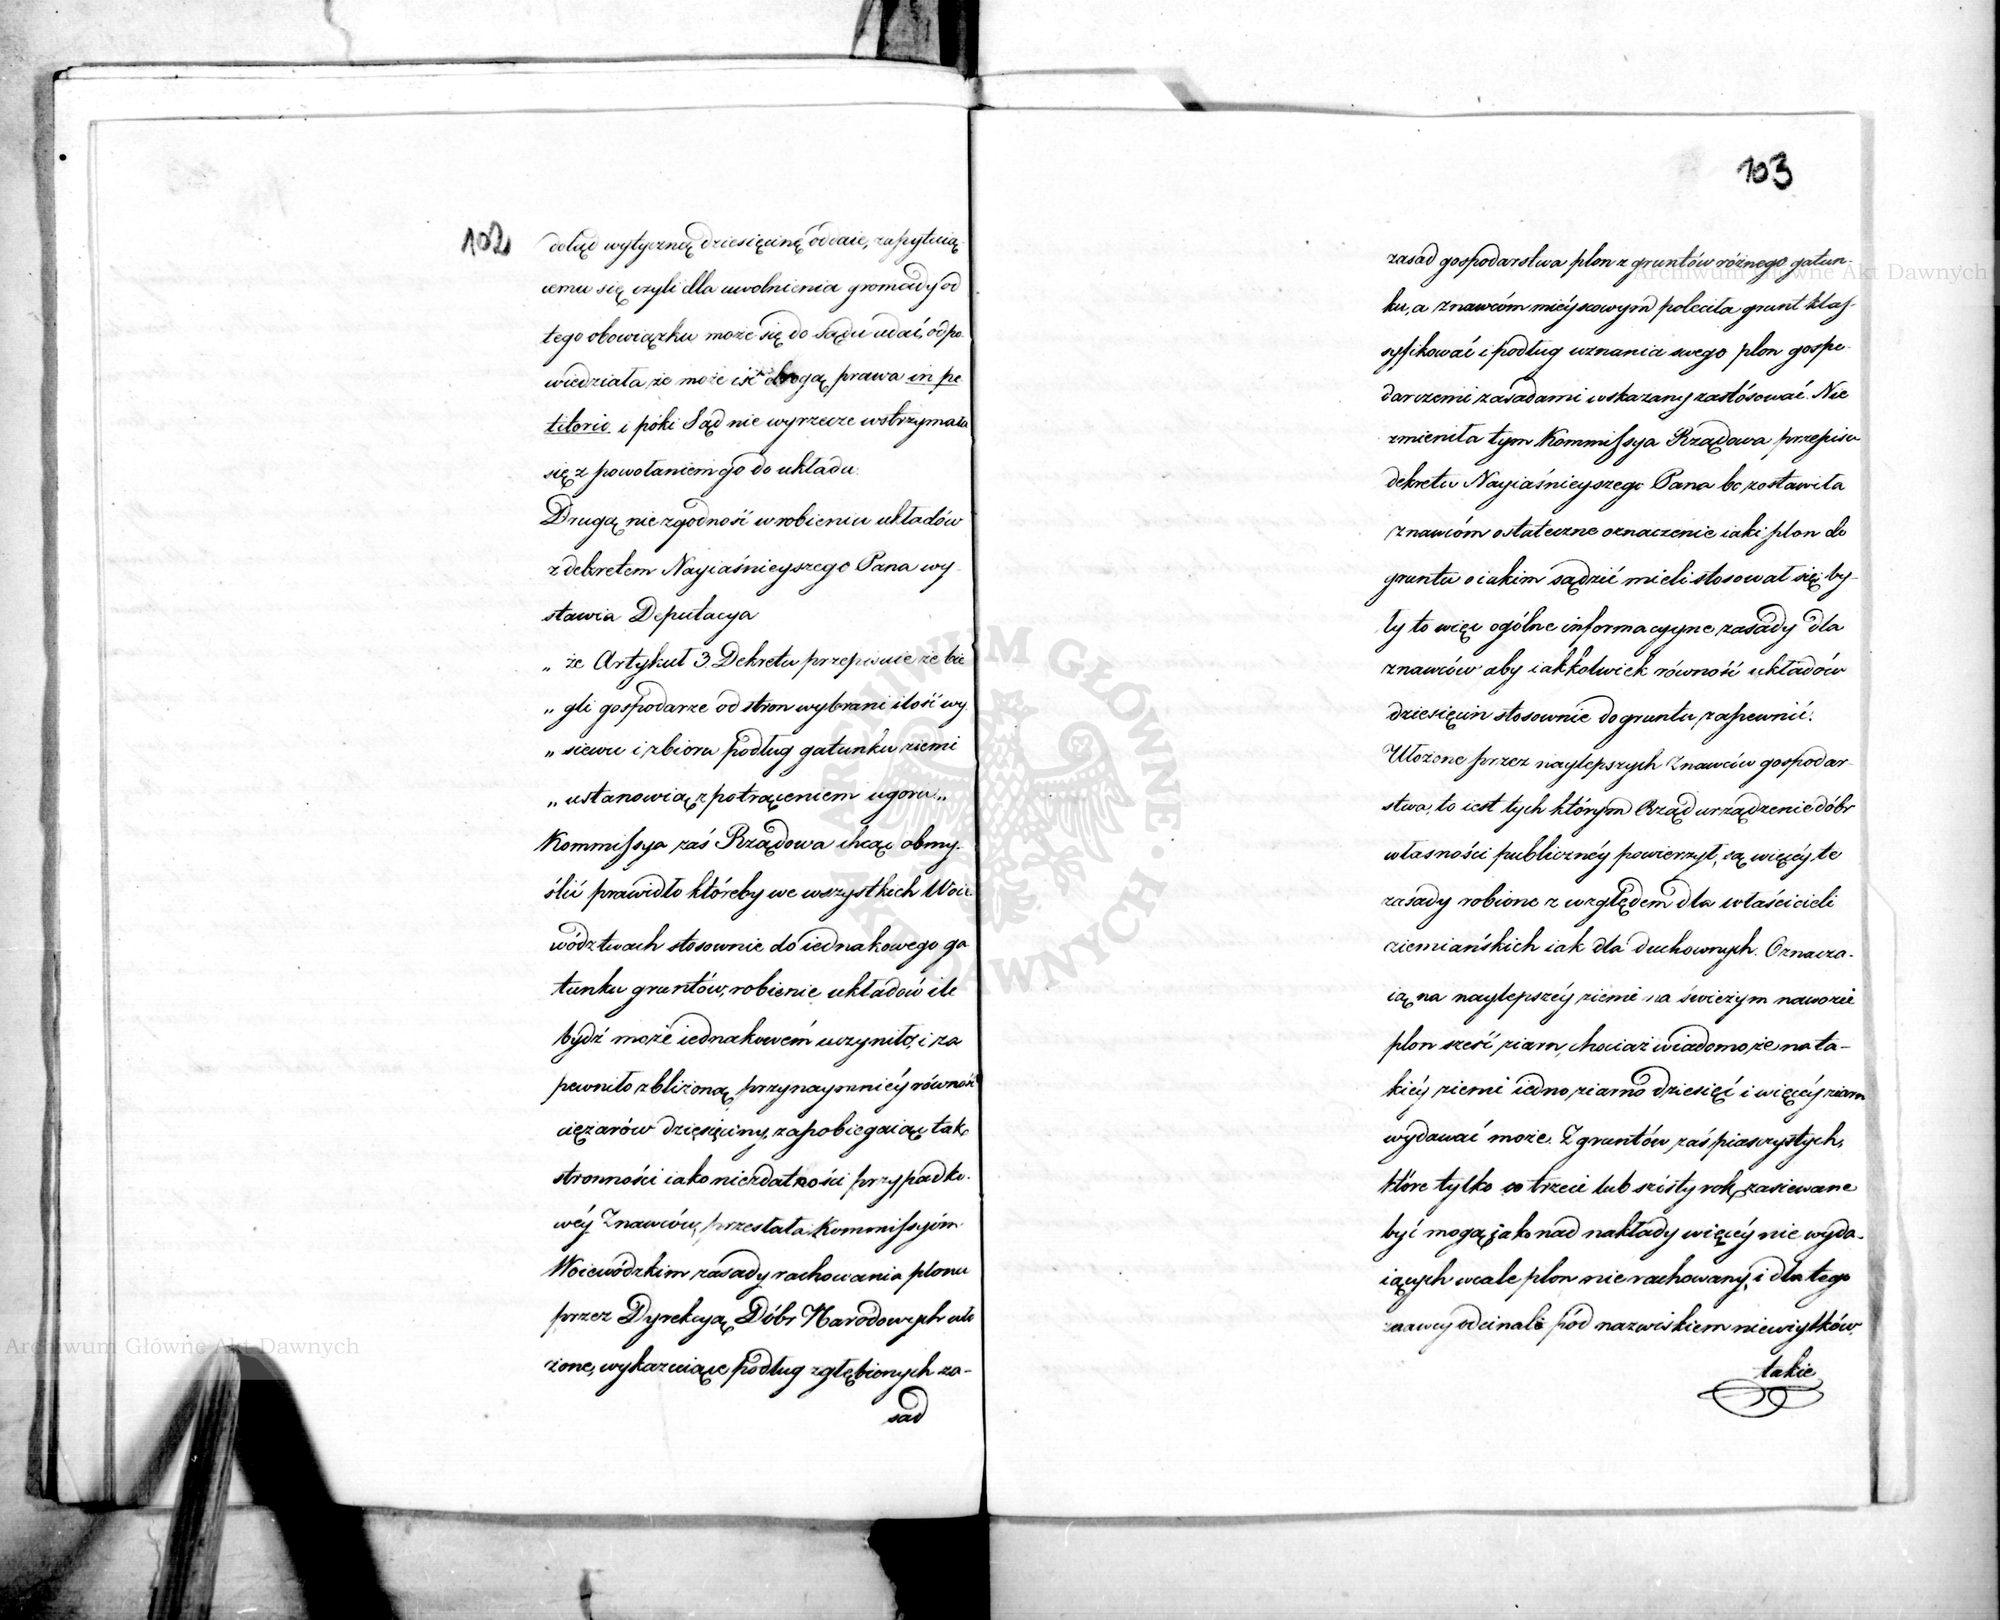 102
dotąd wytyczną dziesięcinę oddaie, zapytuią-
cemu się czyli dla uwolnienia gromady od
tego obowiązku może się do Sądu udać, odpo-
wiedziała że może iść drogą prawa in pe
titorio i póki Sąd nie wyrzecze wstrzymała
się z powołaniem go do układu.
Drugą niezgodność w robieniu układów
z dekretem Nayiaśnieyszego Pana wy-
stawia Deputacya
„ że Artykuł 3. Dekretu przepisuie że bie
„ gli gospodarze od stron wybrani ilość wy
„ siewu i zbioru podług gatunku ziemi
„ ustanowią z potrąceniem ugoru „
Kommissya zaś Rządowa chcąc obmy-
ślić prawidło któreby we wszystkich Woie
wództwach stosownie do iednakowego ga
tunku gruntów, robienie układów ile
bydź może iednakowém uczyniło, i za
pewniło zbliżoną przynaymniéy równość
ciężarów dziesięciny, zapobiegaiąc tak
stronności iako niezdatności przypadko-
wéy Znawców, przesłała Kommissyóm
Woiewódzkim zasady rachowania plonu
przez Dyrekcyą Dóbr Narodowych uło
żone, wykazuiące podług zgłębionych za-
sad
103
zasad gospodarstwa plon z gruntów różnego gatun-
ku, a znawcóm mieyscowym poleciła grunt klas-
syfikować i podług uznania swego plon gospo-
darczemi zasadami wskazany zastósować. Nie
zmieniła tym Kommissya Rządowa przepisu
dekretu Nayiaśnieyszego Pana bo zostawiła
znawcóm ostateczne oznaczenie iaki plon do
gruntu o iakim sądzić mieli stosował się, by-
ły to więc ogólne informacyyne zasady dla
znawców aby iakkolwiek równość układów
dziesięcin stosownie do gruntu, zapewnić.
Ułożone przez naylepszych Znawców gospodar-
stwa, to iest tych którym Rząd urządzenie dóbr
własności publicznéy powierzył, są więcéy te
zasady robione z względem dla właścicieli
ziemiańskich iak dla duchownych. Oznacza-
ią na naylepszéy ziemi na świeżym nawozie
plon sześć ziarn, chociaż wiadomo że na ta-
kiéy ziemi iedno ziarno dziesięć i więcéy ziarn
wydawać może. Z gruntów zaś piasczystych,
które tylko co trzeci lub szósty rok zasiewane
być mogą jako nad nakłady więcéy nie wyda-
iących wcale plon nie rachowany, i dla tego
znawcy odcinali pód nazwiskiem nieużytków
takie